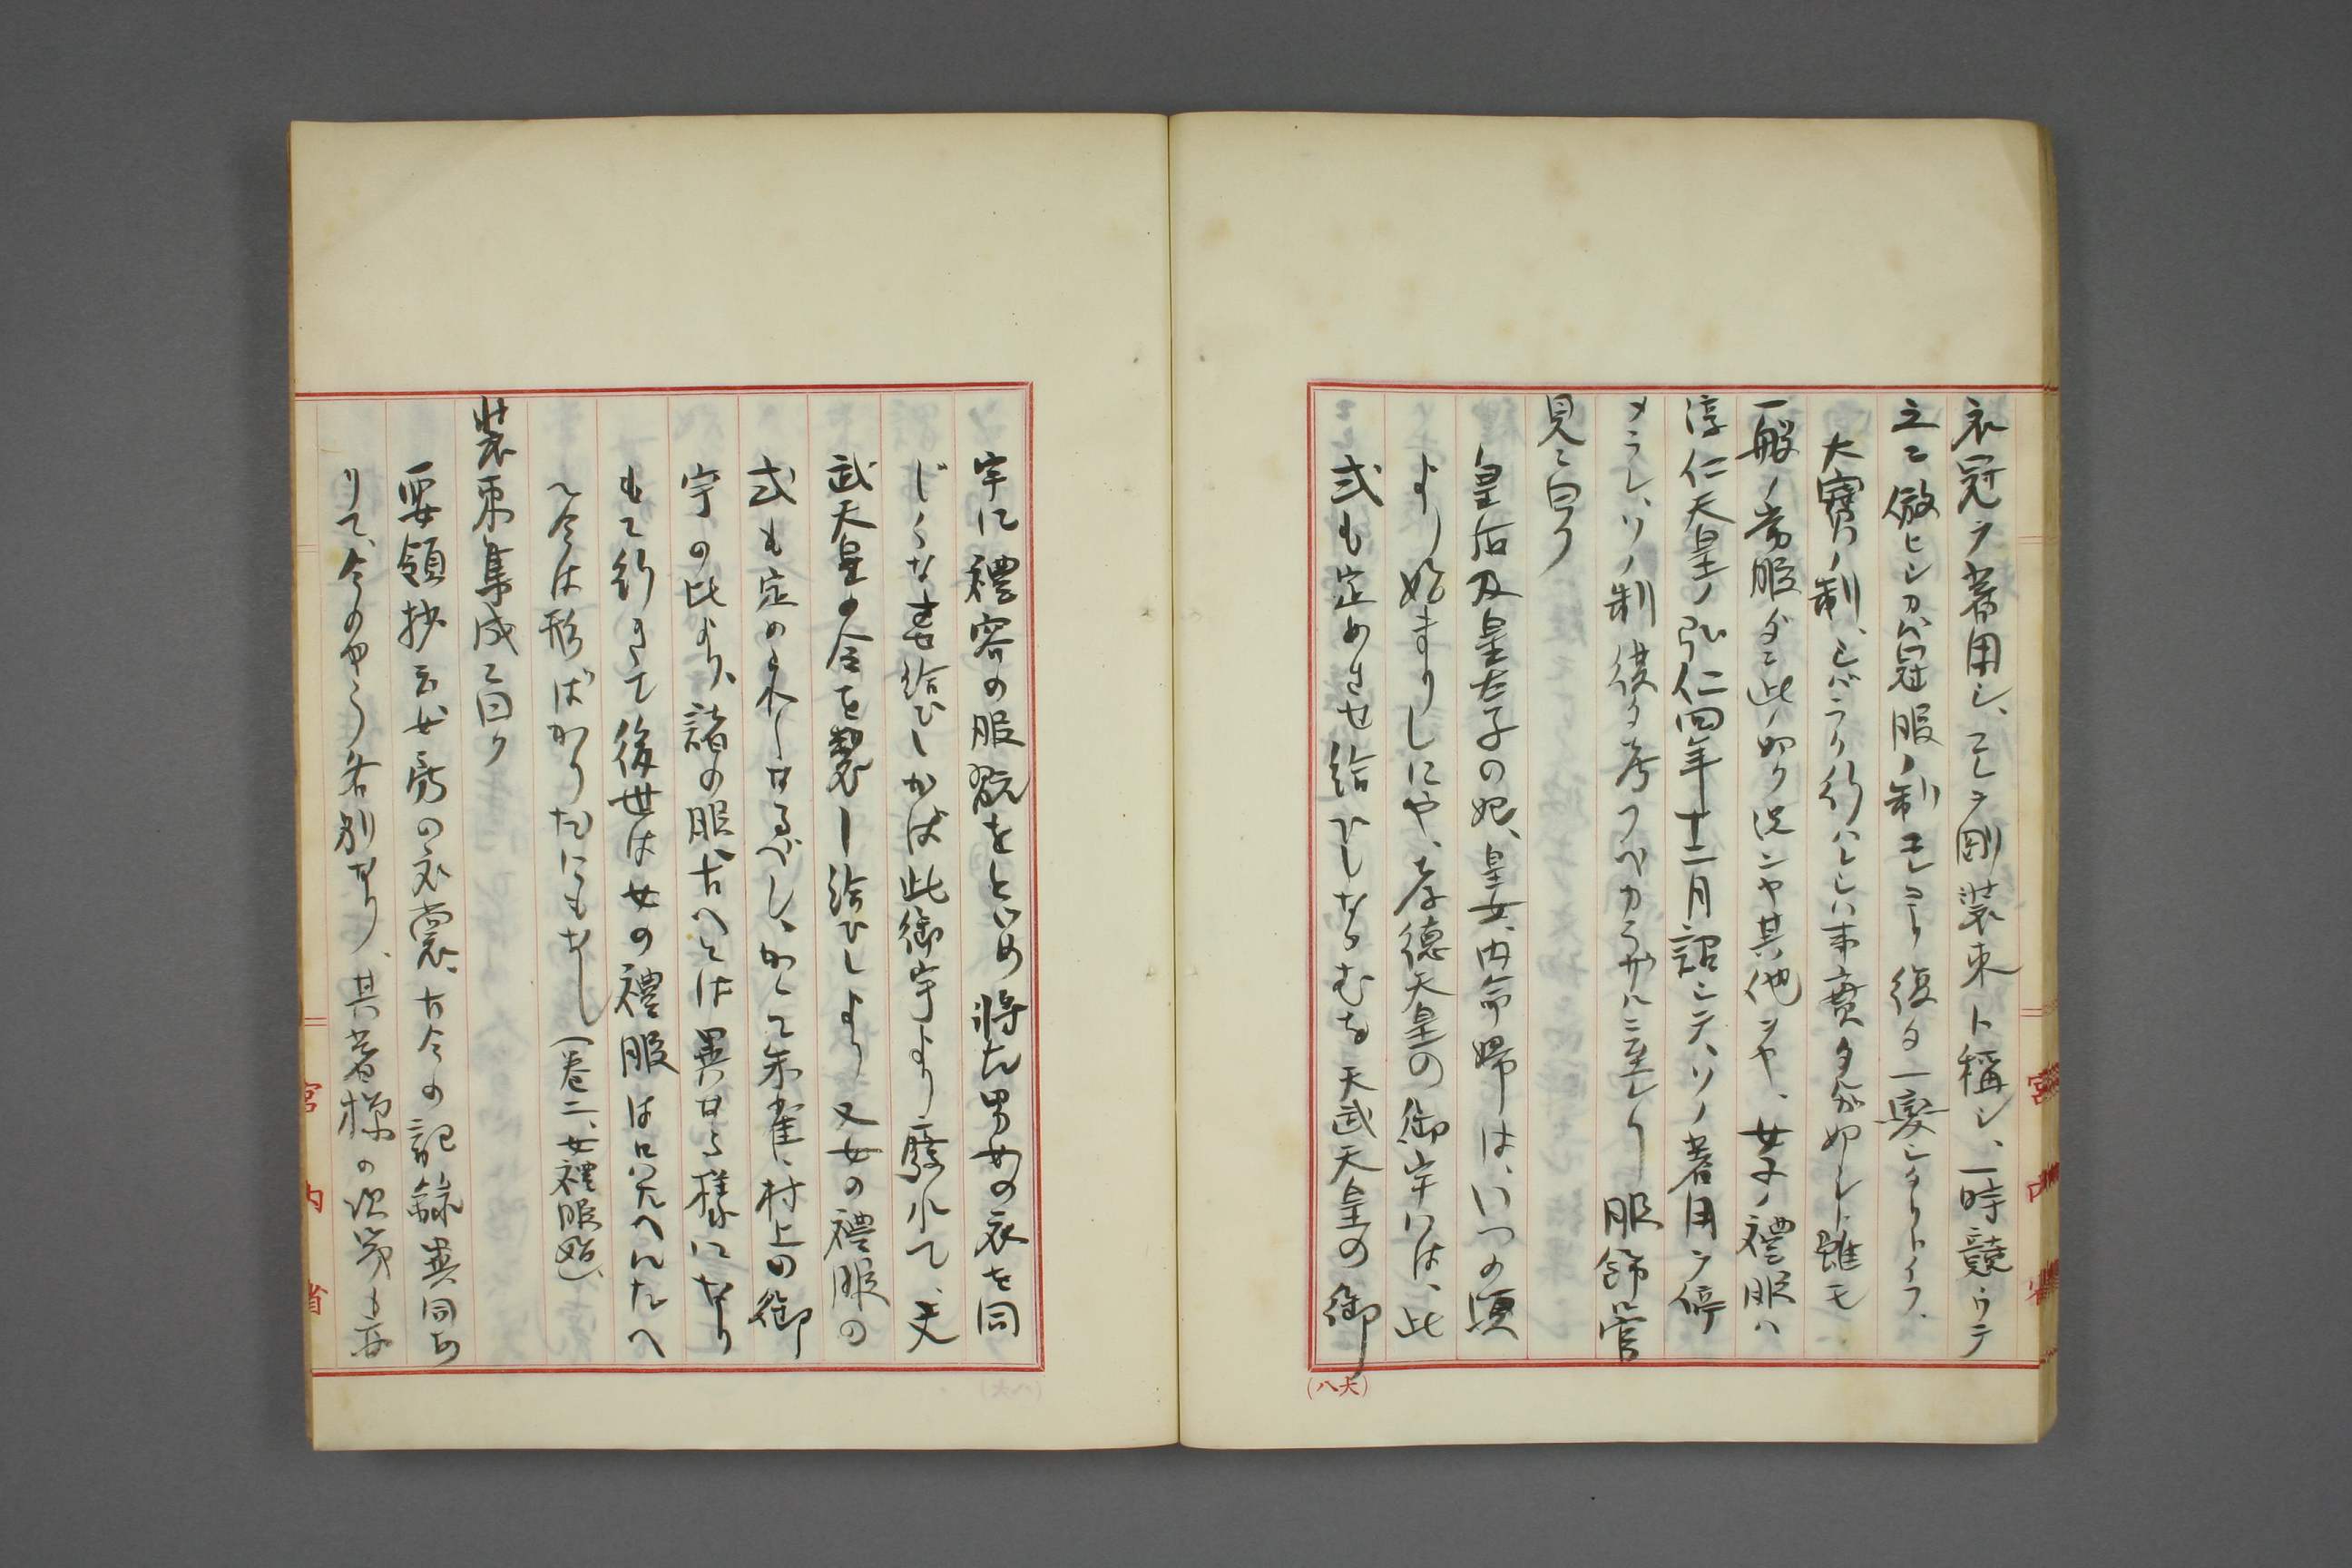 衣冠ヲ著用シ、コレヲ剛装束ト稱シ、一時競ウテ
之ニ倣ヒシカバ冠服ノ制コレヨリ復タ一變シタリトイフ、
大寶ノ制、シバラク行ハレシハ事實タルガ如シト雖モ
一般ノ常服ダニ此ノ如ク況ンヤ其他ヲヤ、女子ノ禮服ハ
淳仁天皇ノ弘仁四年十二月詔シテ、ソノ著用ヲ停
メラレ、ソノ制復タ考フベカラザルニ至レリ服飾管
見ニ曰ク
皇后及皇太子の妃、皇女、内命婦は、いつの頃
より始まりしにや、孝德天皇の御宇には、此
式も定めさせ給ひしならむを天武天皇の御
宇に禮容の服翫をとゞめ將た男女の衣を同
じくな 給ひしかば此御宇より廢れて、文
武天皇の令を製し給ひしより又女の禮服の
式も定められしなるべし、かくて朱雀、村上の御
宇の比より、諸の服、古へとは異なる樣になり
もて行きて後世は女の禮服は只名へにたへ
て今は形ばかりだにもなし（卷二、女禮服始）、
装束集成ニ曰ク
要領抄云女房の衣裳、古今の記錄異同あ
りて、今のやう各別なり、其著樣の次第も亦
宮内省
宮内省
（八大）